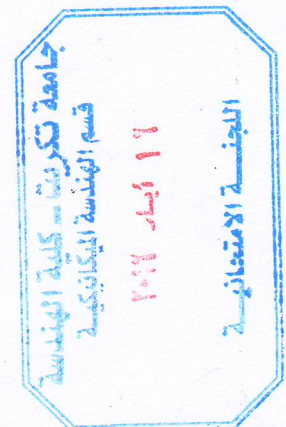 جامعة تكريت - كلية الهندسة
قسم الهندسة الميكانيكية
ايار
اللجنة الامتحانية